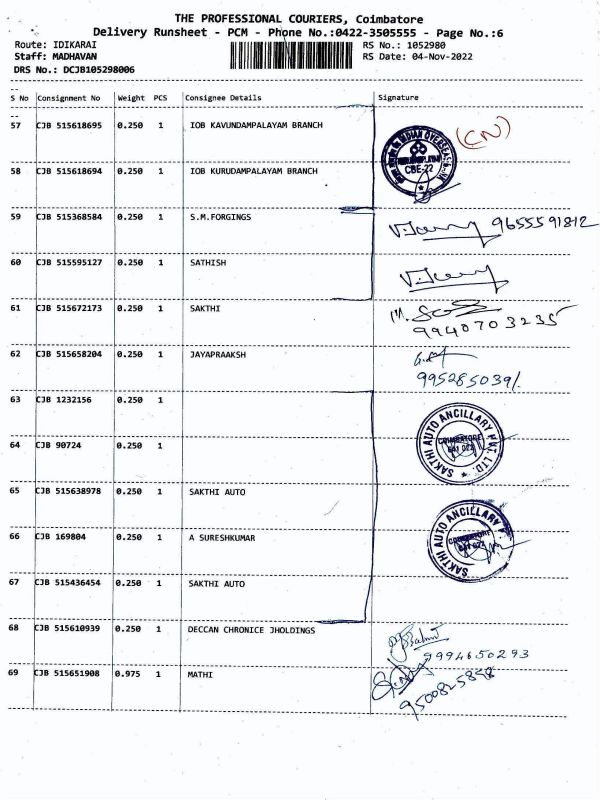 THE PROFESSIONAL COURIERS, Coimbatore
Delivery Runsheet - PCM - Phone No.:0422-3505555 - Page No.:6
Route: IDIKARAI RS No.: 1052980
Staff: MADHAVAN RS Date: 04-Nov-2022
DRS No.: DCJB105298006
S No Consignment No Weight PCS Consignee Details Signature
57 CJB 515618695 0.250 1 IOB KAVUNDAMPALAYAM BRANCH
(CN)
INDIAN OVERSEAS
CBE-22
58 CJB 515618694 0.250 1 IOB KURUDAMPALAYAM BRANCH
59 CJB 515368584 0.250 1 S.M.FORGINGS
9655591812
60 CJB 515595127 0.250 1 SATHISH
61 CJB 515672173 0.250 1 SAKTHI
9940703235
62 CJB 515658204 0.250 1 JAYAPRAAKSH
9952850391.
63 CJB 1232156 0.250 1
SAKTHI AUTO ANCILLARY PVT. LTD.
COIMBATORE
641 022
64 CJB 90724 0.250 1
65 CJB 515638978 0.250 1 SAKTHI AUTO
SAKTHI AUTO ANCILLARY
COIMBATORE
641 022
66 CJB 169804 0.250 1 A SURESHKUMAR
67 CJB 515436454 0.250 1 SAKTHI AUTO
68 CJB 515610939 0.250 1 DECCAN CHRONICE JHOLDINGS
9994650293
69 CJB 515651908 0.975 1 MATHI
9500825898